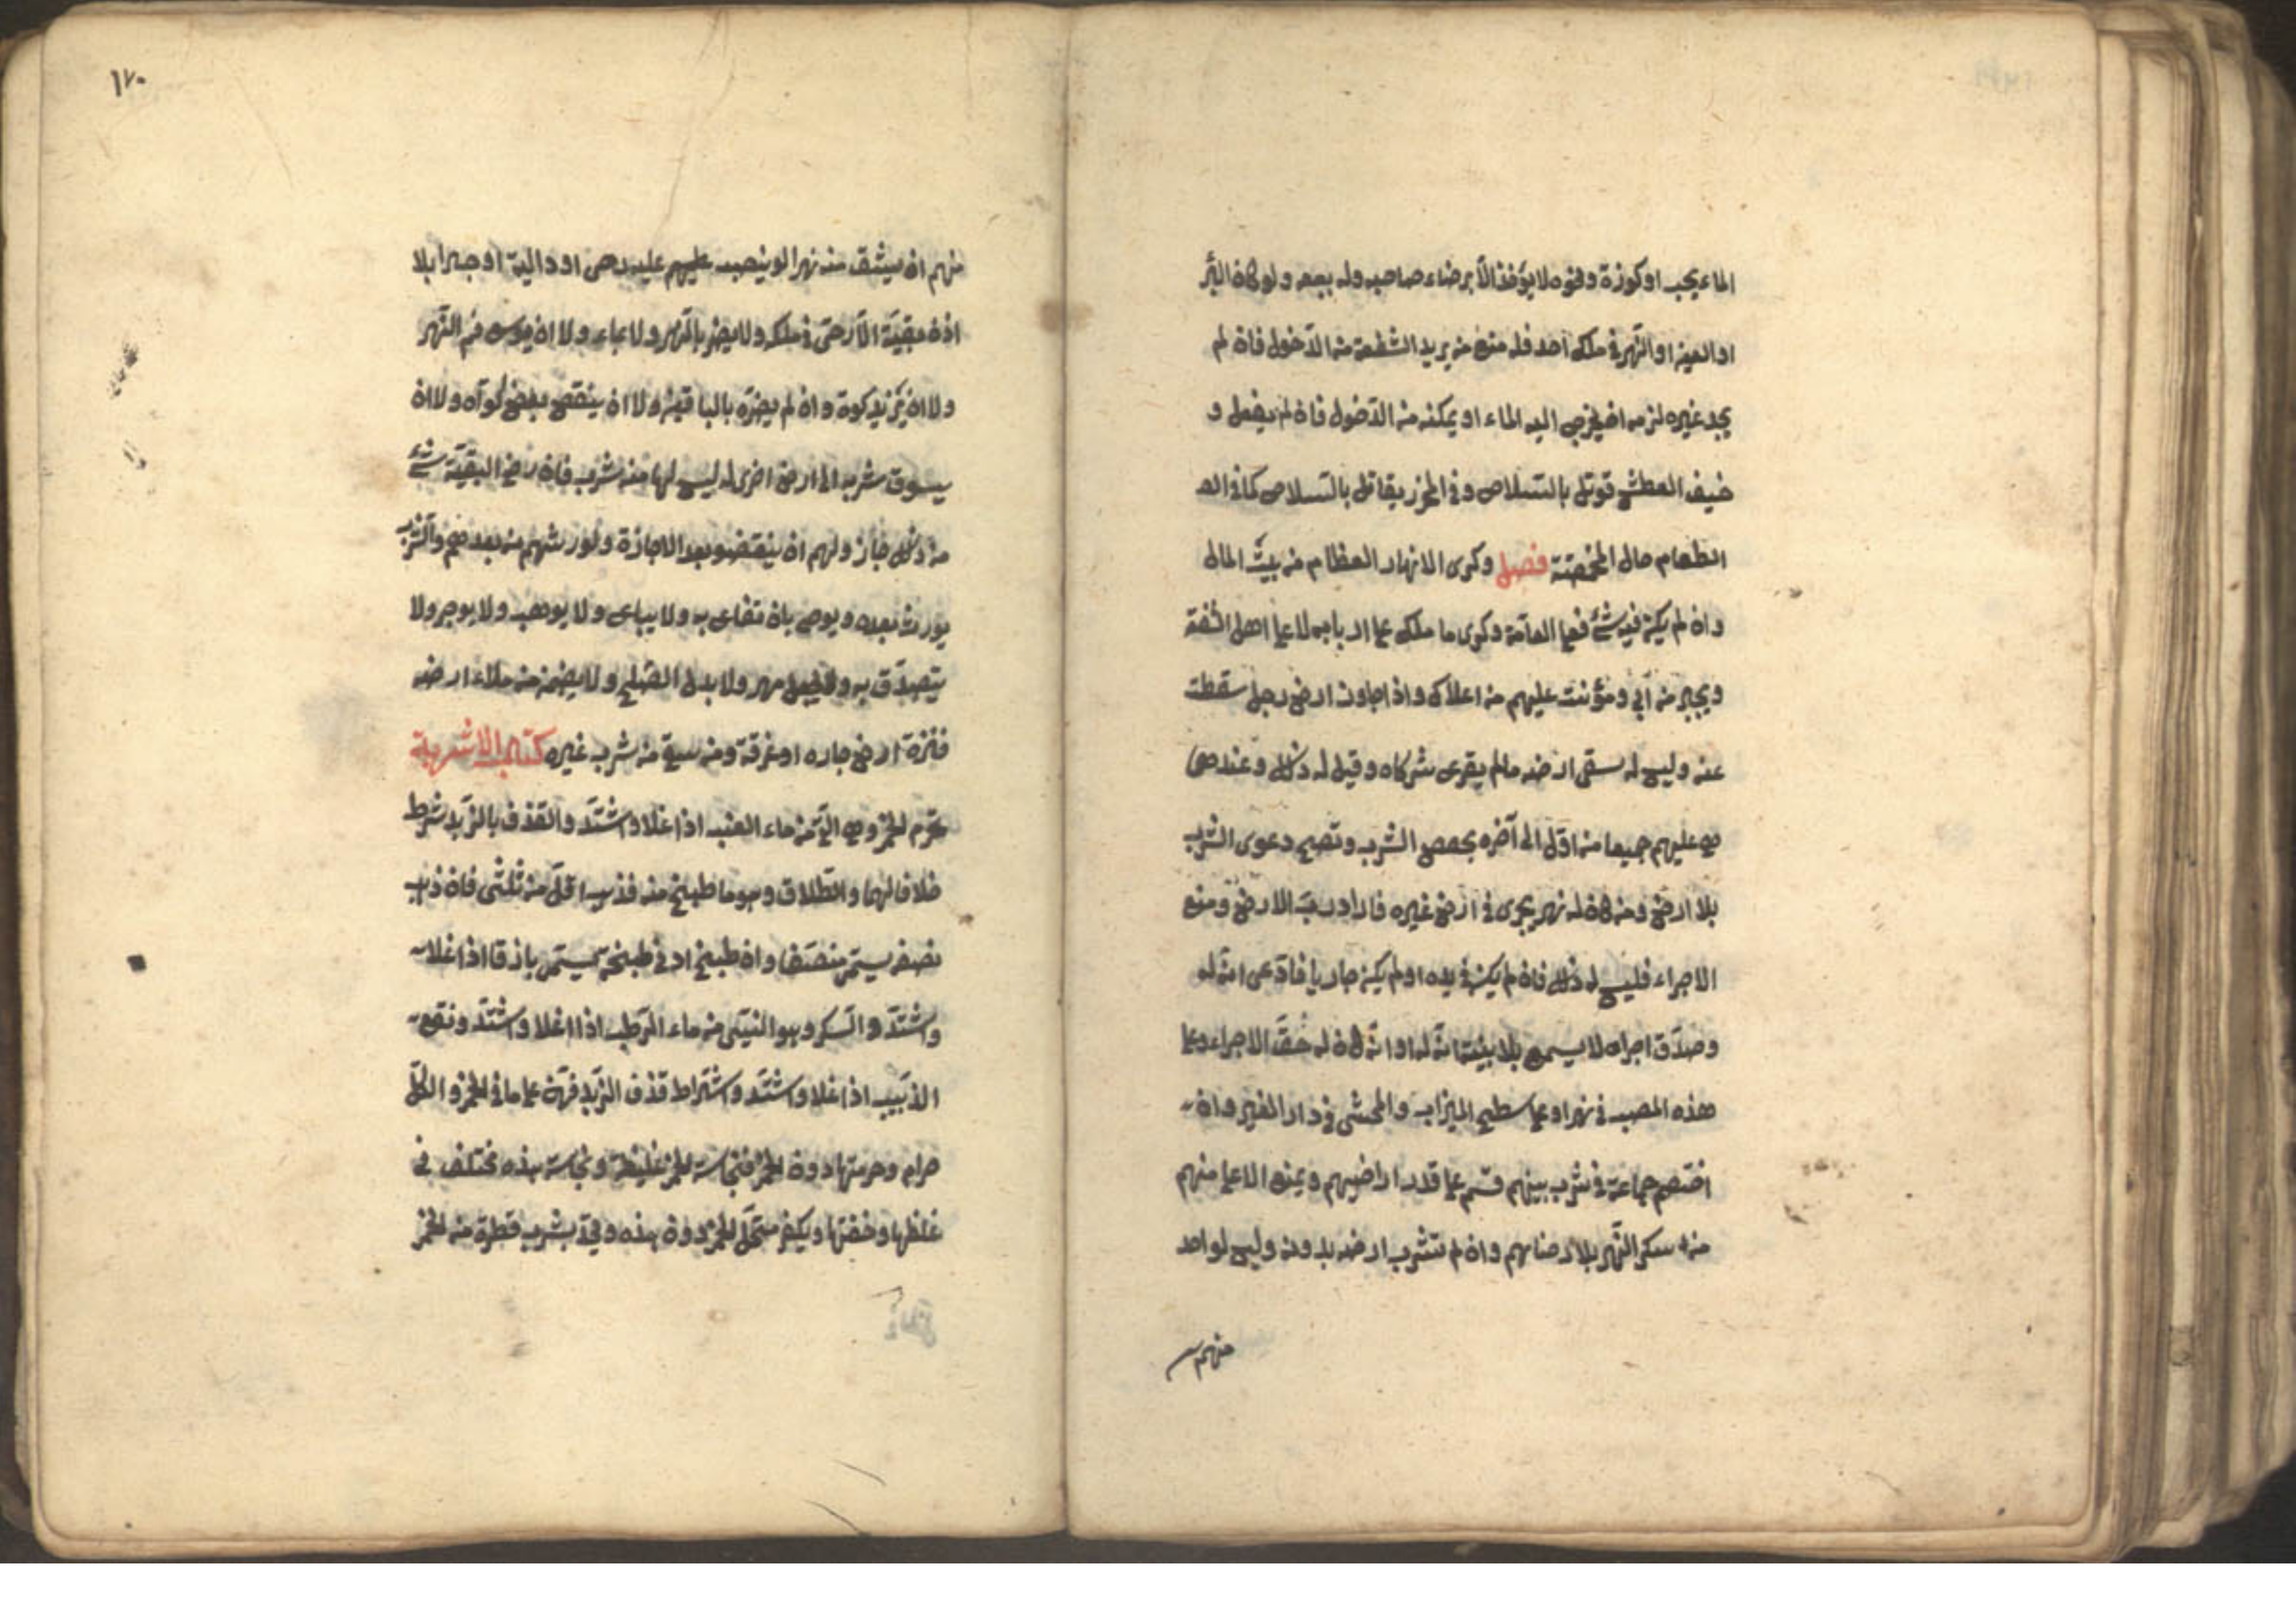 الماء بحب او كوزة ونحوه لا يؤخذ الا برضاء صاحبه وله بيعه ولو كان البئر
او العين او النهر في ملك احد فله منع من يريد الشفعة من الدخول فان لم
يجد غيره لزمه ان يخرج اليه الماء او يمكنه من الدخول فان لم يفعل و
خيف العطش قوتل بالسلاح وفي المحرز يقاتل بالسلاح كما في الع
الطعام حال المخمصة فصل وكرى الانهار العظام من بيت المال
وان لم يكن فيه شئ فعلى العامة وكرى ما ملك على اربابه لا على اهل الشفة
ويجبر من آبى ومؤنت عليهم من اعلاه واذا جاوز ارض رجل سقطت
عنه وليس له سقى ارضه مالم يفرى شركاه وقيل له ذلك وعندهى
هي عليهم جميعا من اوله الى آخره بحصص الشرب وتصح دعوى الشرب
بلا ارض ومن كان له نهر يجرى في ارض غيره فاراد رب الارض ومنع
الاجراء فليس له ذلك فان لم يكن في يده او لم يكن جاريا فادعى انه له
وصدق اجراه لا يسمع بلا بينة انه له او انه كان له حق الاجراء وعلى
هذه المصب في نهر او على سطح الميزاب والممشى في دار الغير وان
اختصم جماعة في شرب بينهم قسم على قدر اراضيهم ويمنع الاعلى منهم
من سكر النهر بلا رضاهم وان لم تشرب ارضه بدونه وليس لواحد
منهم
١٧٠
منهم ان يشق منه نهرا او ينصب عليهم عليه رحى او دالية او جسرا بلا
اذن بقية الا رحى في ملكه ولا يضر بالنهر ولا بماء ولا ان يوسع فم النهر
ولا ان يزيد كوة وان لم يضره بالباقين ولا ان ينقص بعض كواه ولا ان
يسوق شربه الى ارض اخرى له ليس لها منه شرب فان رضى البقية شئ
من ذلك جاز ولهم ان ينقضو بعد الاجازة ولورثهم من بعدهم والشرب
يورث بعده ويوصى بان تنفاع به ولا يباع ولا يوهب ولا يوجر ولا
يتصدق به ولا يجعل مهر ولا بدل الصلح ولا يضمن من ملاء ارضه
فنزة ارض جاره او غرقة ومن سقى من شرب غيره كتاب الاشربة
حرم الخمر وهى التى من ماء العنب اذا غلا واشتد والقذف بالزبد شرط
خلافا لهما والطلاق وهو ما طبخ منه فذهب اقل من ثلثى فان ذهب
نصفه يسمى منصفا وان طبخ ادنى طبخة يسمى باذقا اذا غلا
واشتد والسكر وهو النيئى من ماء الرطب اذا اغلا واشتد ونقيع
الذبيب اذا غلا واشتد واشتراط قذف الزبد فهن على ما فى الخمر والكل
حرام وحرمتها دون الخمر فنجاسة الخمر غليظة ونجاسة هذه مختلف فى
غلظها وخفتها ويكفر مستحل الخمر دون هذه ويحد بشرب قطرة من الخمر